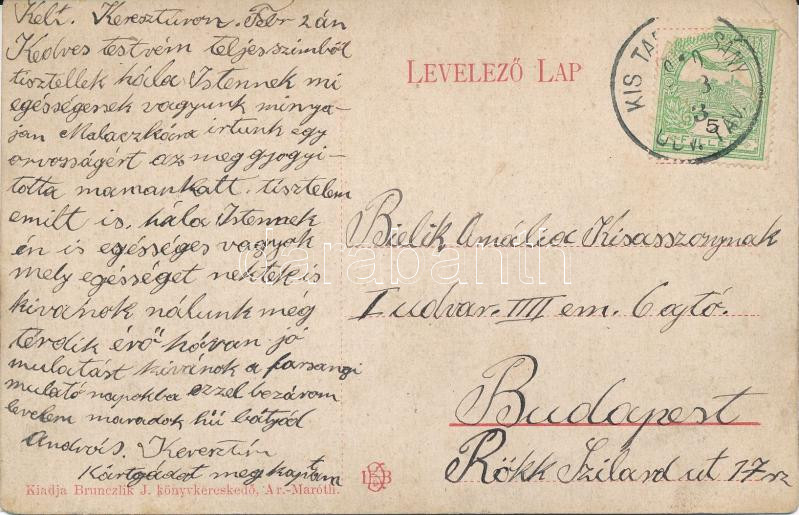 Kelt. Keresztúron. Febr 2án
Kedves testvém teljesszimböl
tisztellek hála Istennek mi
egésségenek vagyunk minya-
jan Malaczkara irtunk egy
orvosságért az meggjogyi-
totta mamankatt. tisztelem
emilt is. hála Istennek
én is egésséges vagyok
mely egésséget nektek is
kivánok nálunk még
térdik érő hóvan jó
mulatást kivánok a farsangi
mulató napokba ezzel bezárom
levelem maradok hű bátyád
András. Keresztúr
Kártyádat meg kaptam
Kiadja Brunczlik J. könyvkereskedő, Ar.-Maróth.
LEVELEZŐ LAP
KIS TA
910
3
3
5
Bielik Amália Kisasszonynak
I udvar. IIII em. 6 ajtó.
Budapest
Rökk Szilard ut 17 sz
darabanth